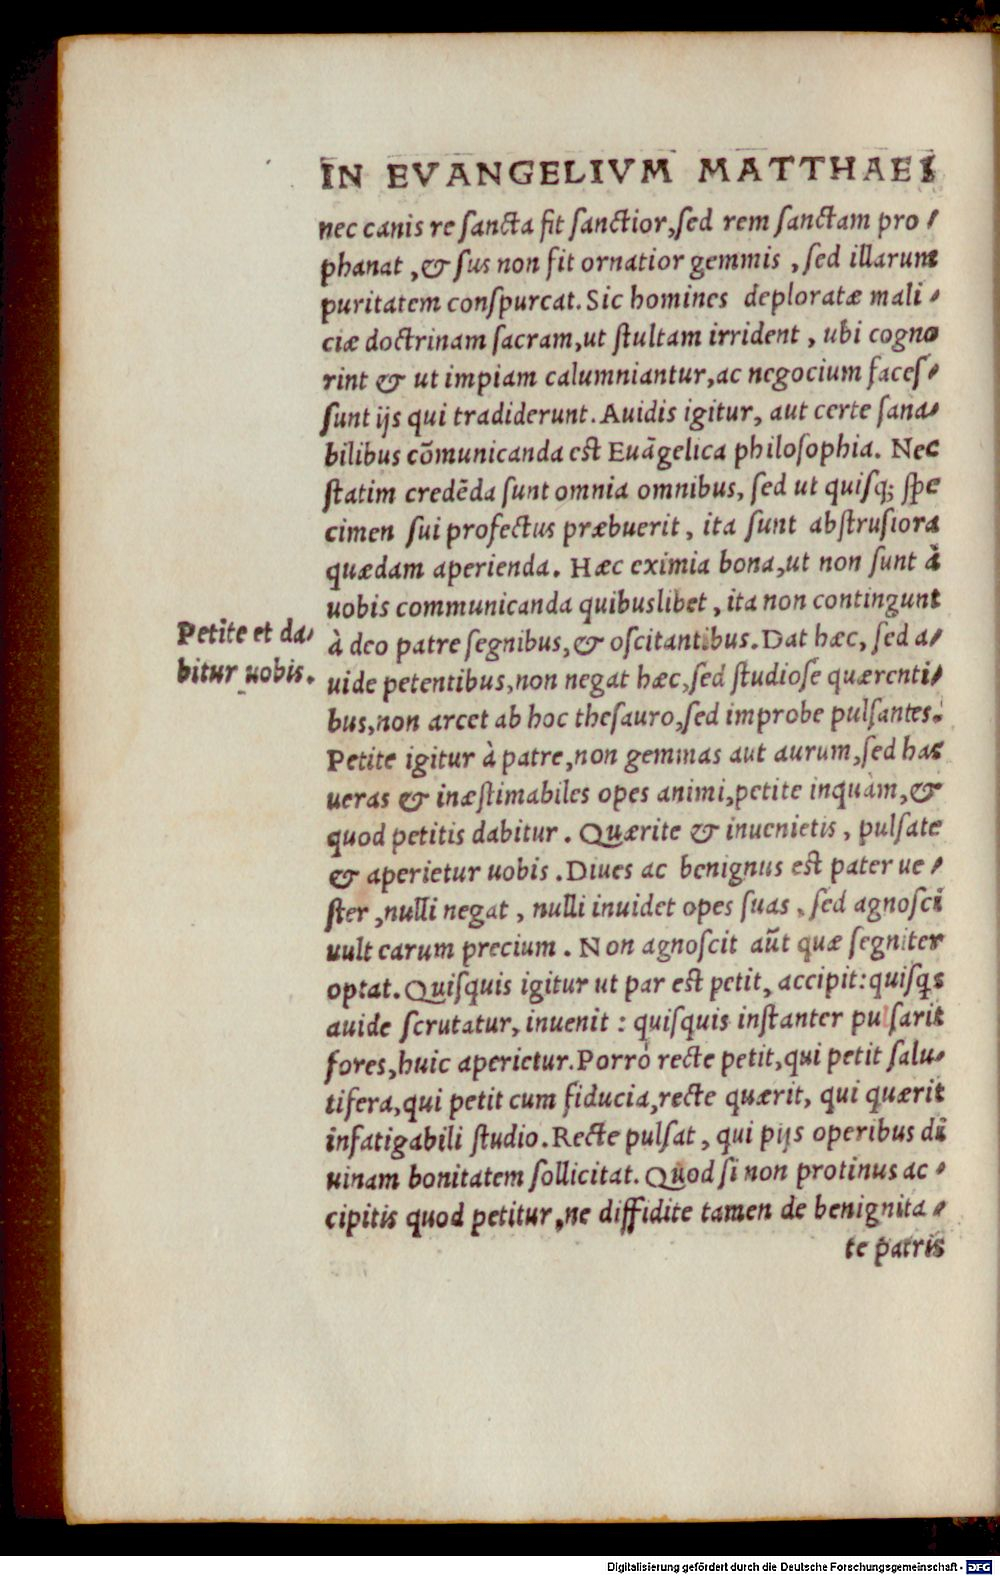 IN EVANGELIVM MATTHAEI
nec canis re sancta fit sanctior, sed rem sanctam pro-
phanat, & sus non fit ornatior gemmis, sed illarum
puritatem conspurcat. Sic homines deploratæ mali-
ciæ doctrinam sacram, ut stultam irrident, ubi cogno
rint & ut impiam calumniantur, ac negocium faces-
sunt ijs qui tradiderunt. Auidis igitur, aut certe sana-
bilibus cõmunicanda est Euãgelica philosophia. Nec
statim credẽda sunt omnia omnibus, sed ut quisq; spe
cimen sui profectus præbuerit, ita sunt abstrusiora
quædam aperienda. Hæc eximia bona, ut non sunt à
uobis communicanda quibuslibet, ita non contingunt
Petite et da-
bitur uobis.
à deo patre segnibus, & oscitantibus. Dat hæc, sed a-
uide petentibus, non negat hæc, sed studiose quærenti-
bus, non arcet ab hoc thesauro, sed improbe pulsantes.
Petite igitur à patre, non gemmas aut aurum, sed has
ueras & inæstimabiles opes animi, petite inquàm, &
quod petitis dabitur. Quærite & inuenietis, pulsate
& aperietur uobis. Diues ac benignus est pater ue-
ster, nulli negat, nulli inuidet opes suas, sed agnosci
uult carum precium. Non agnoscit aũt quæ segniter
optat. Quisquis igitur ut par est petit, accipit: quisqs
auide scrutatur, inuenit: quisquis instanter pulsarit
fores, huic aperietur. Porrò recte petit, qui petit salu-
tifera, qui petit cum fiducia, recte quærit, qui quærit
infatigabili studio. Recte pulsat, qui pijs operibus di
uinam bonitatem sollicitat. Quod si non protinus ac-
cipitis quod petitur, ne diffidite tamen de benignita-
te patris
Digitalisierung gefördert durch die Deutsche Forschungsgemeinschaft - DFG